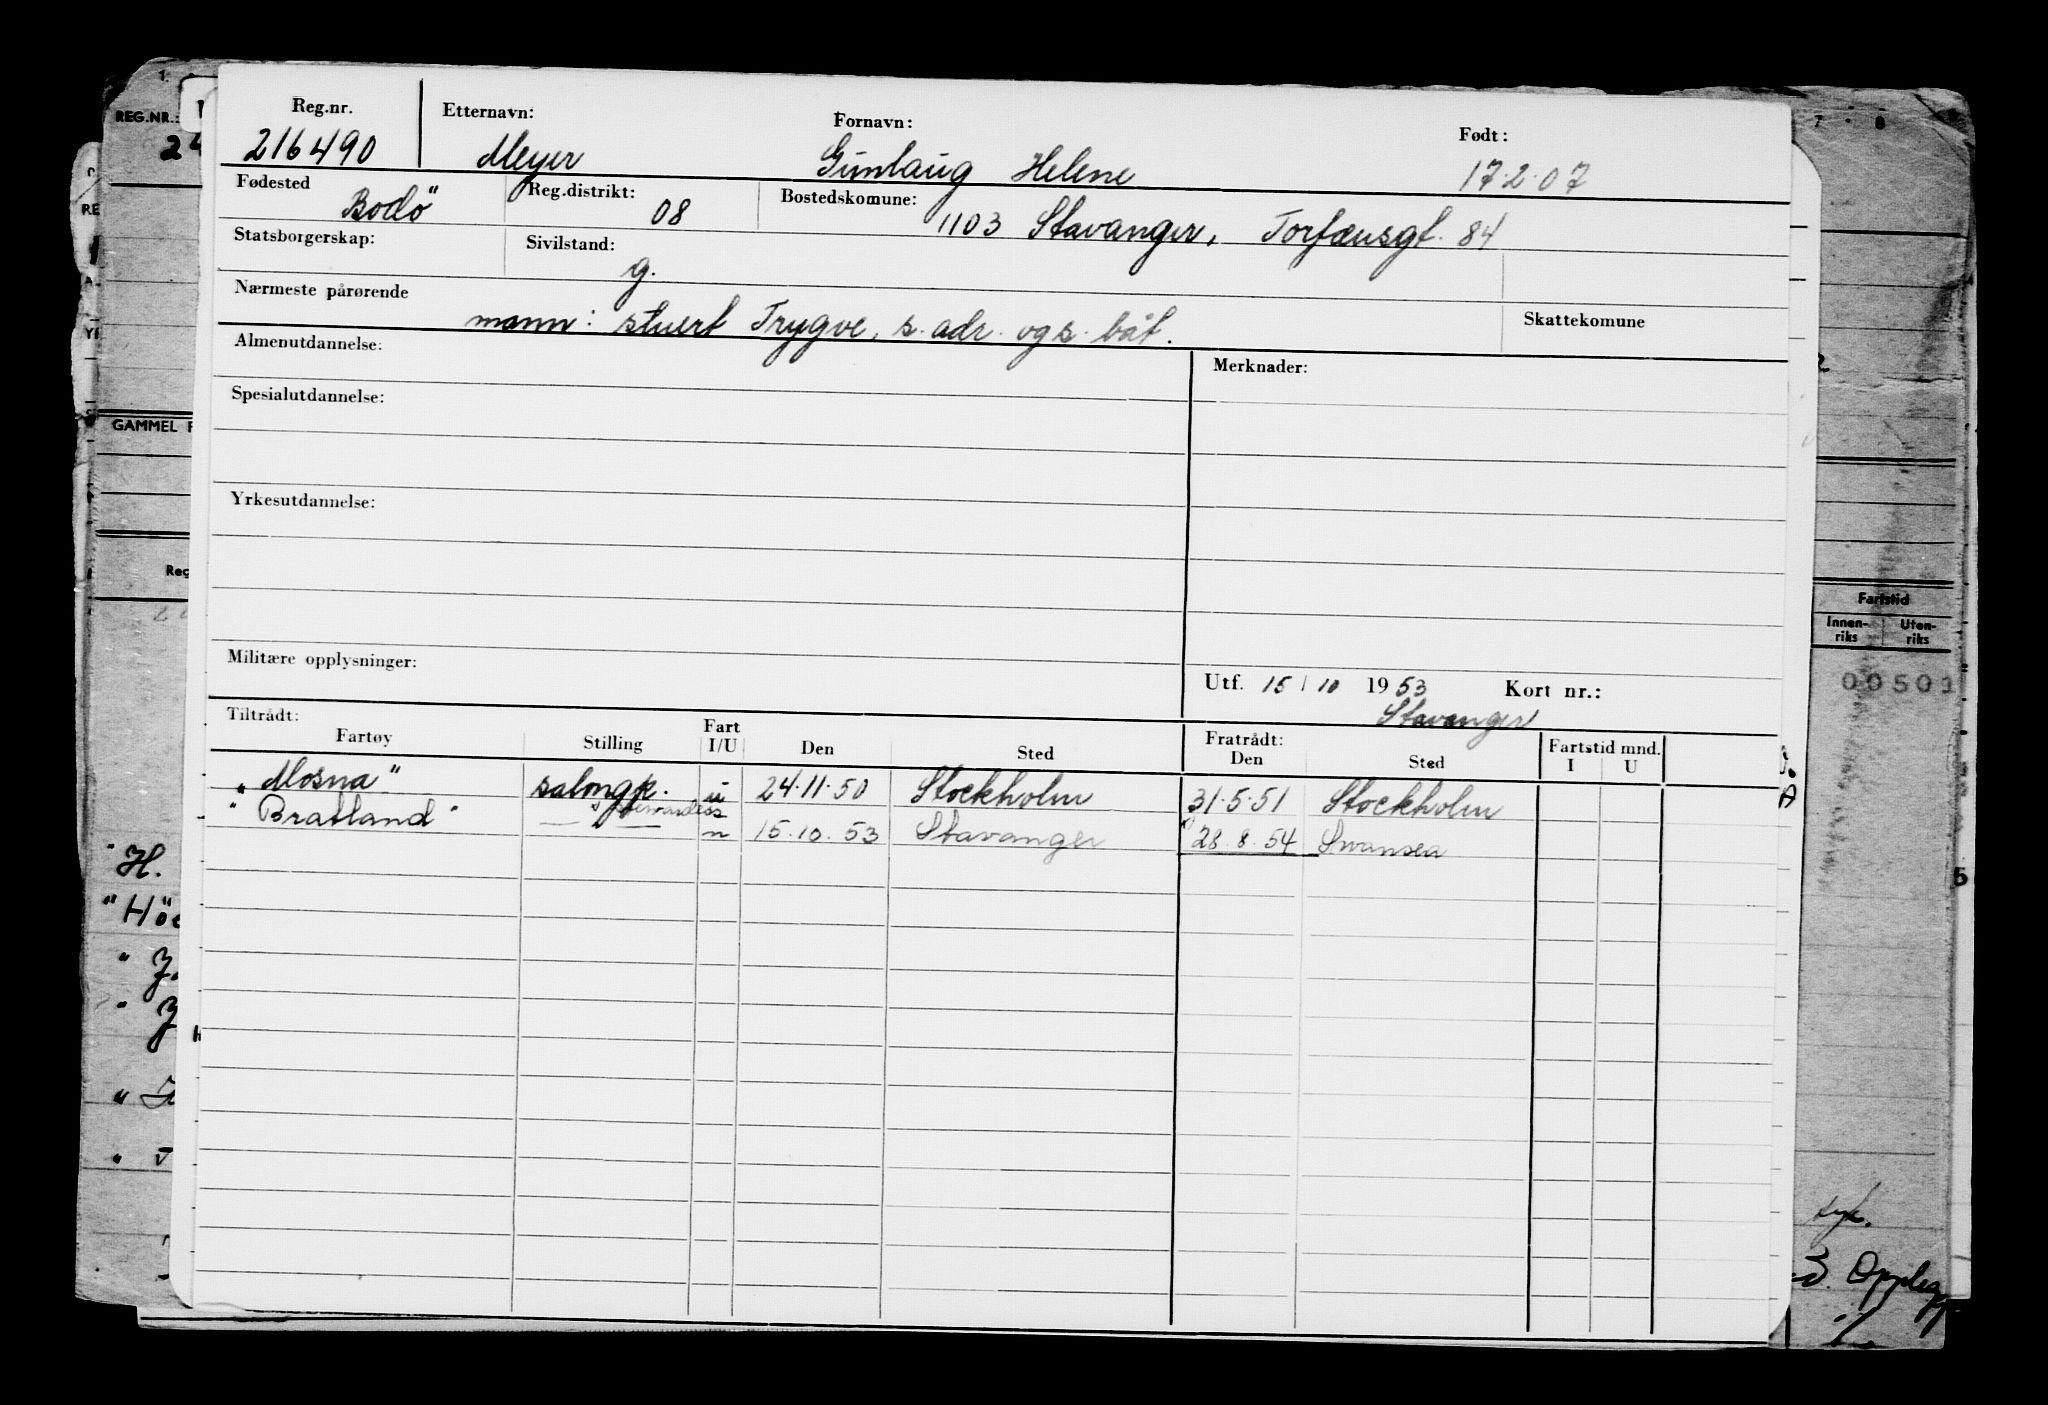 REG.NR.:
Reg.nr. Etternavn: Fornavn: Født:
216490 Meyer Gunlaug Helene 17.2.07
Fødested Reg.distrikt: Bostedskomune:
Bodö 08 1103 Stavanger, Torfæusgt. 84
Statsborgerskap: Sivilstand:
g.
Nærmeste pårørende Skattekomune
mann: stuert Trygve, s. adr. ogs. båt.
Almenutdannelse: Merknader:
Spesialutdannelse:
GAMMEL
Yrkesutdannelse:
Fartstid
Innen-riks Uten-riks
Militære opplysninger:
Utf. 15/10 1953 Kort nr.:
Stavanger
Tiltrådt: Fratrådt:
Fartøy Stilling Fart I/U Den Sted Den Sted Fartstid mnd. I U
"Mosna" salongp. u 24.11.50 Stockholm 31.5.51 Stockholm
"Bratland" — — 15.10.53 Stavanger 28.8.54 Swansea